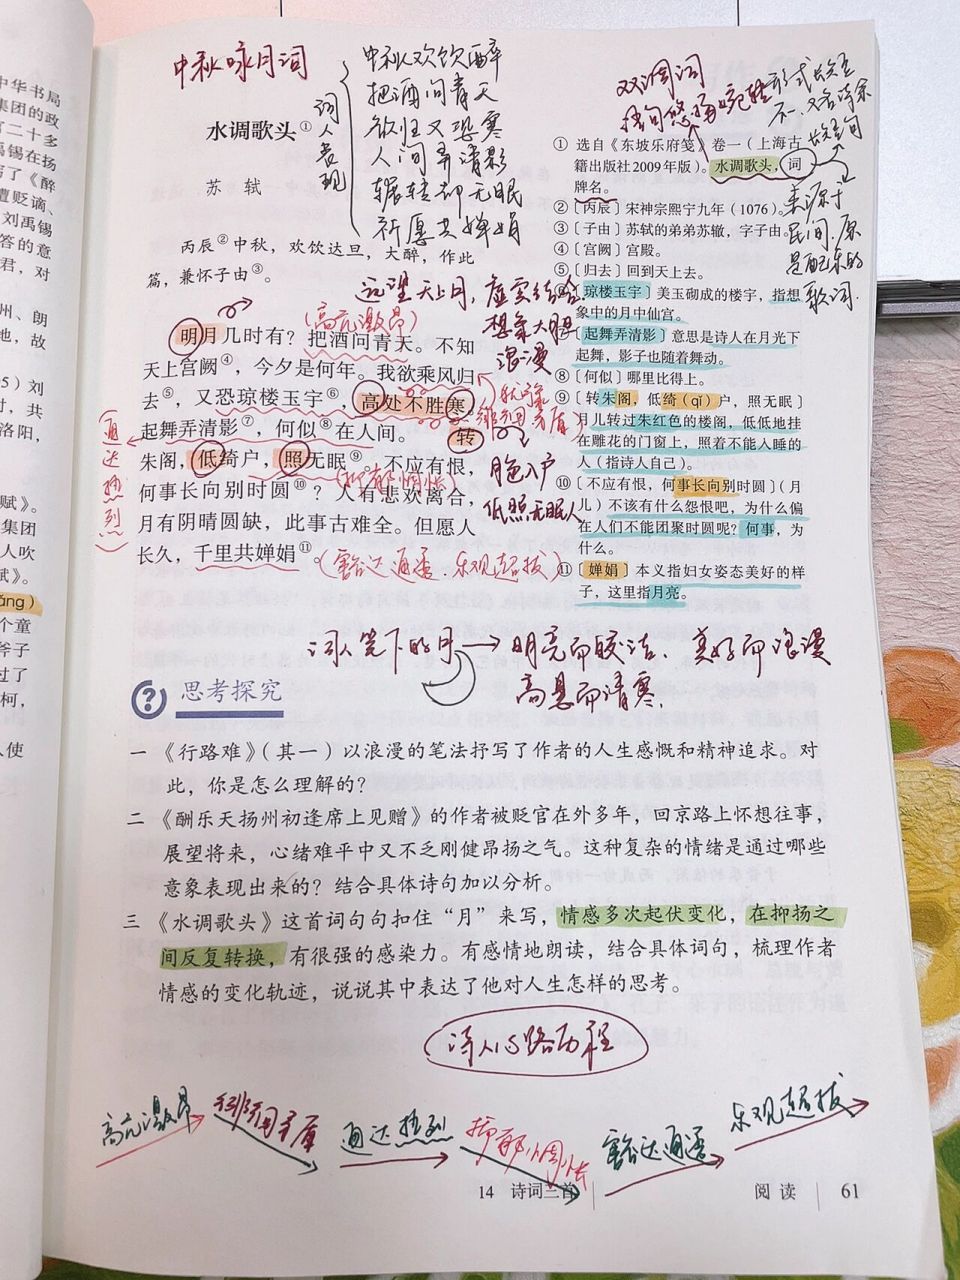 中华书局
集团的政
二十多
禹锡在扬
写了《醉
遭贬谪、
刘禹锡
答的意
君，对
州、朗
地，故
05）刘
时，共
洛阳，
赋》。
集团
人吹
赋》。
ǎng）
个童
斧子
过了
柯，
人使
中秋咏月词
词人表现
中秋欢饮醉
把酒问青天
欲归又恐寒
人间弄清影
辗转却无眠
祈愿共婵娟
水调歌头①
苏 轼
丙辰②中秋，欢饮达旦，大醉，作此
篇，兼怀子由③。
远望天上月，虚实结合
想象大胆
浪漫
（高亢激昂）
明月几时有？把酒问青天。不知
天上宫阙④，今夕是何年。我欲乘风归
去⑤，又恐琼楼玉宇⑥，高处不胜寒。
起舞弄清影⑦，何似⑧在人间。 转
朱阁，低绮户，照无眠⑨。不应有恨，
何事长向别时圆⑩？人有悲欢离合，
月有阴晴圆缺，此事古难全。但愿人
长久，千里共婵娟⑪。
（通达热烈）
矛盾
（抑郁惆怅）
月色入户
低照无眠人
（豁达通透、乐观超拔）
双调词
悠扬婉转
形式长短
不一，又名诗余
长短句
美源于
民间，原
是配乐的
歌词
① 选自《东坡乐府笺》卷一（上海古
籍出版社2009年版）。水调歌头，词
牌名。
②〔丙辰〕宋神宗熙宁九年（1076）。
③〔子由〕苏轼的弟弟苏辙，字子由。
④〔宫阙〕宫殿。
⑤〔归去〕回到天上去。
〔琼楼玉宇〕美玉砌成的楼宇，指想
象中的月中仙宫。
⑦〔起舞弄清影〕意思是诗人在月光下
起舞，影子也随着舞动。
⑧〔何似〕哪里比得上。
⑨〔转朱阁，低绮（qǐ）户，照无眠〕
月儿转过朱红色的楼阁，低低地挂
在雕花的门窗上，照着不能入睡的
人（指诗人自己）。
⑩〔不应有恨，何事长向别时圆〕（月
儿）不该有什么怨恨吧，为什么偏
在人们不能团聚时圆呢？何事，为
什么。
⑪〔婵娟〕本义指妇女姿态美好的样
子，这里指月亮。
词人笔下的月→明亮而皎洁、美好而浪漫
高悬而清寒、
思考探究
一 《行路难》（其一）以浪漫的笔法抒写了作者的人生感慨和精神追求。对
此，你是怎么理解的？
二 《酬乐天扬州初逢席上见赠》的作者被贬官在外多年，回京路上怀想往事，
展望将来，心绪难平中又不乏刚健昂扬之气。这种复杂的情绪是通过哪些
意象表现出来的？结合具体诗句加以分析。
三 《水调歌头》这首词句句扣住“月”来写，情感多次起伏变化，在抑扬之
间反复转换，有很强的感染力。有感情地朗读，结合具体词句，梳理作者
情感的变化轨迹，说说其中表达了他对人生怎样的思考。
诗人心路历程
高亢激昂
纠结矛盾
通达热烈
抑郁惆怅
豁达通透
乐观超拔
14 诗词三首
阅读 61